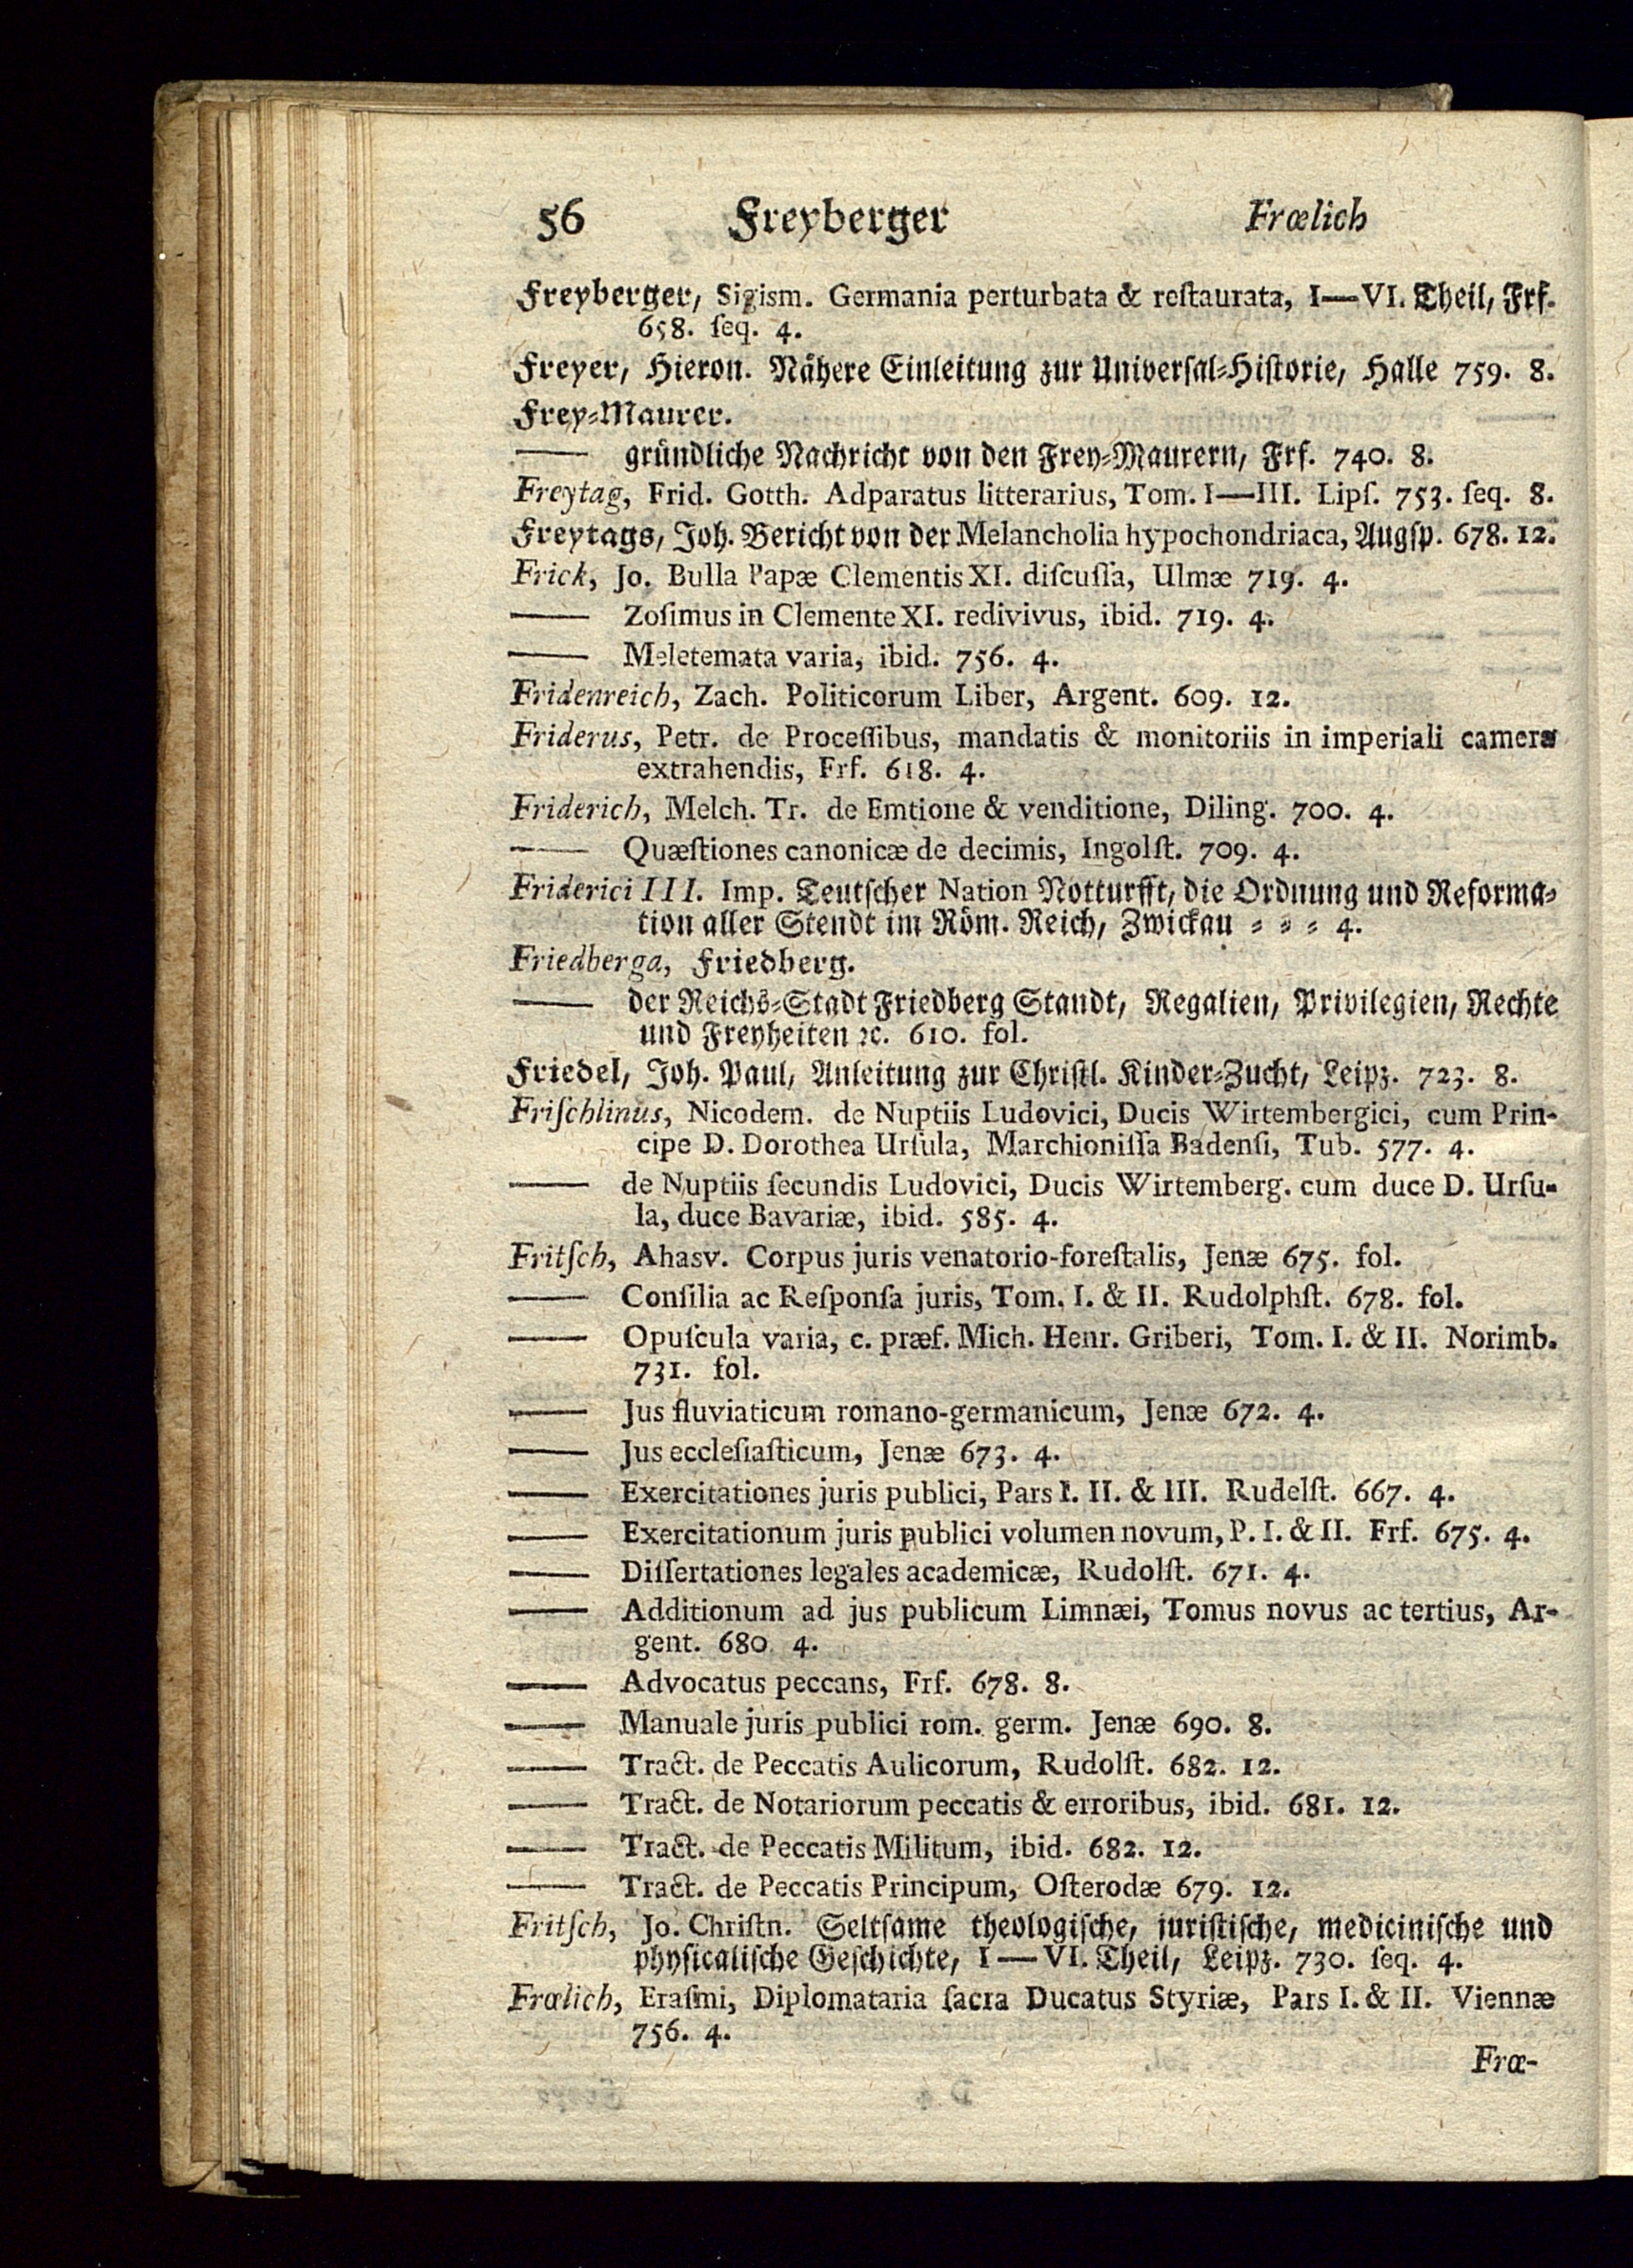 56 Freyberger Frœlich
Freyberger, Sigism. Germania perturbata & reſtaurata, I—VI. Theil, Frf.
658. ſeq. 4.
Freyer, Hieron. Nähere Einleitung zur Univerſal-Hiſtorie, Halle 759. 8.
Frey-Maurer.
— gründliche Nachricht von den Frey-Maurern, Frf. 740. 8.
Freytag, Frid. Gotth. Adparatus litterarius, Tom. I—III. Lipſ. 753. ſeq. 8.
Freytags, Joh. Bericht von der Melancholia hypochondriaca, Augſp. 678. 12.
Frick, Jo. Bulla Papæ Clementis XI. diſcuſſa, Ulmæ 719. 4.
— Zoſimus in Clemente XI. redivivus, ibid. 719. 4.
— Meletemata varia, ibid. 756. 4.
Fridenreich, Zach. Politicorum Liber, Argent. 609. 12.
Friderus, Petr. de Proceſſibus, mandatis & monitoriis in imperiali camera
extrahendis, Frf. 618. 4.
Friderich, Melch. Tr. de Emtione & venditione, Diling. 700. 4.
— Quæſtiones canonicæ de decimis, Ingolſt. 709. 4.
Friderici III. Imp. Teutſcher Nation Notturfft, die Ordnung und Reforma-
tion aller Stendt im Röm. Reich, Zwickau - - - 4.
Friedberga, Friedberg.
— der Reichs-Stadt Friedberg Standt, Regalien, Privilegien, Rechte
und Freyheiten ꝛc. 610. fol.
Friedel, Joh. Paul, Anleitung zur Chriſtl. Kinder-Zucht, Leipz. 723. 8.
Friſchlinus, Nicodem. de Nuptiis Ludovici, Ducis Wirtembergici, cum Prin-
cipe D. Dorothea Urſula, Marchioniſſa Badenſi, Tub. 577. 4.
— de Nuptiis ſecundis Ludovici, Ducis Wirtemberg. cum duce D. Urſu-
la, duce Bavariæ, ibid. 585. 4.
Fritſch, Ahasv. Corpus juris venatorio-foreſtalis, Jenæ 675. fol.
— Conſilia ac Reſponſa juris, Tom. I. & II. Rudolphſt. 678. fol.
— Opuſcula varia, c. præf. Mich. Henr. Griberi, Tom. I. & II. Norimb.
731. fol.
— Jus fluviaticum romano-germanicum, Jenæ 672. 4.
— Jus eccleſiaſticum, Jenæ 673. 4.
— Exercitationes juris publici, Pars I. II. & III. Rudelſt. 667. 4.
— Exercitationum juris publici volumen novum, P. I. & II. Frf. 675. 4.
— Diſſertationes legales academicæ, Rudolſt. 671. 4.
— Additionum ad jus publicum Limnæi, Tomus novus ac tertius, Ar-
gent. 680. 4.
— Advocatus peccans, Frf. 678. 8.
— Manuale juris publici rom. germ. Jenæ 690. 8.
— Tract. de Peccatis Aulicorum, Rudolſt. 682. 12.
— Tract. de Notariorum peccatis & erroribus, ibid. 681. 12.
— Tract. de Peccatis Militum, ibid. 682. 12.
— Tract. de Peccatis Principum, Oſterodæ 679. 12.
Fritſch, Jo. Chriſtn. Seltſame theologiſche, juriſtiſche, mediciniſche und
phyſicaliſche Geſchichte, I—VI. Theil, Leipz. 730. ſeq. 4.
Frœlich, Eraſmi, Diplomataria ſacra Ducatus Styriæ, Pars I. & II. Viennæ
756. 4.
Frœ-